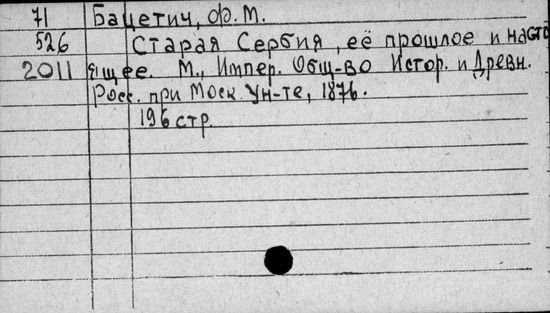 71 Бацетич, Ф. М.
526 Старая Сербия, её прошлое и насто
2011 ящее. М., Импер. Общ-во Истор. и Древн.
Росс. при Моск. Ун-те, 1876.
196 стр.